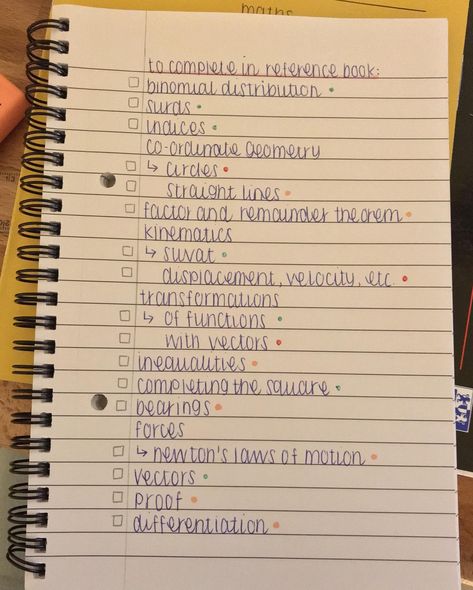 maths
to complete in reference book:
binomial distribution
surds
indices
co-ordinate Geometry
↳ circles
straight lines
factor and remainder theorem
kinematics
↳ suvat
displacement, velocity, etc.
transformations
↳ of functions
with vectors
inequalities
completing the square
bearings
forces
↳ newton's laws of motion
vectors
proof
differentiation